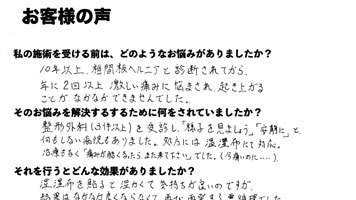 お客様の声
私の施術を受ける前は、どのようなお悩みがありましたか？
10年以上、椎間板ヘルニアと診断されてから、
年に2回以上激しい痛みに悩まされ、起き上がる
ことがなかなかできませんでした。
そのお悩みを解決するするために何をされていましたか？
整形外科（3件以上）を受診し、「様子を見ましょう」「安静に」と
何もしない病院もありました。処方には湿布にて対応。
治療もなく「痛みが酷くなったら、また来て下さい」でした。（今痛いのに……）
それを行うとどんな効果がありましたか？
温湿布を貼ると温かくて気持ちが良いのですが、